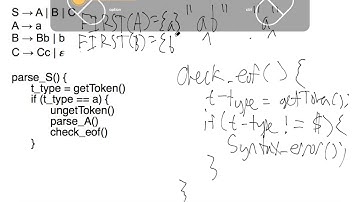 S → A | B | C
A → a
B → Bb | b
C → Cc | ε
FIRST(A)={a}
FIRST(B)={b
"ab"
"a"
parse_S() {
t_type = getToken()
if (t_type == a) {
ungetToken()
parse_A()
check_eof()
}
check_eof() {
t-type = getToken();
if (t-type != $) {
Syntax_error();
}
}